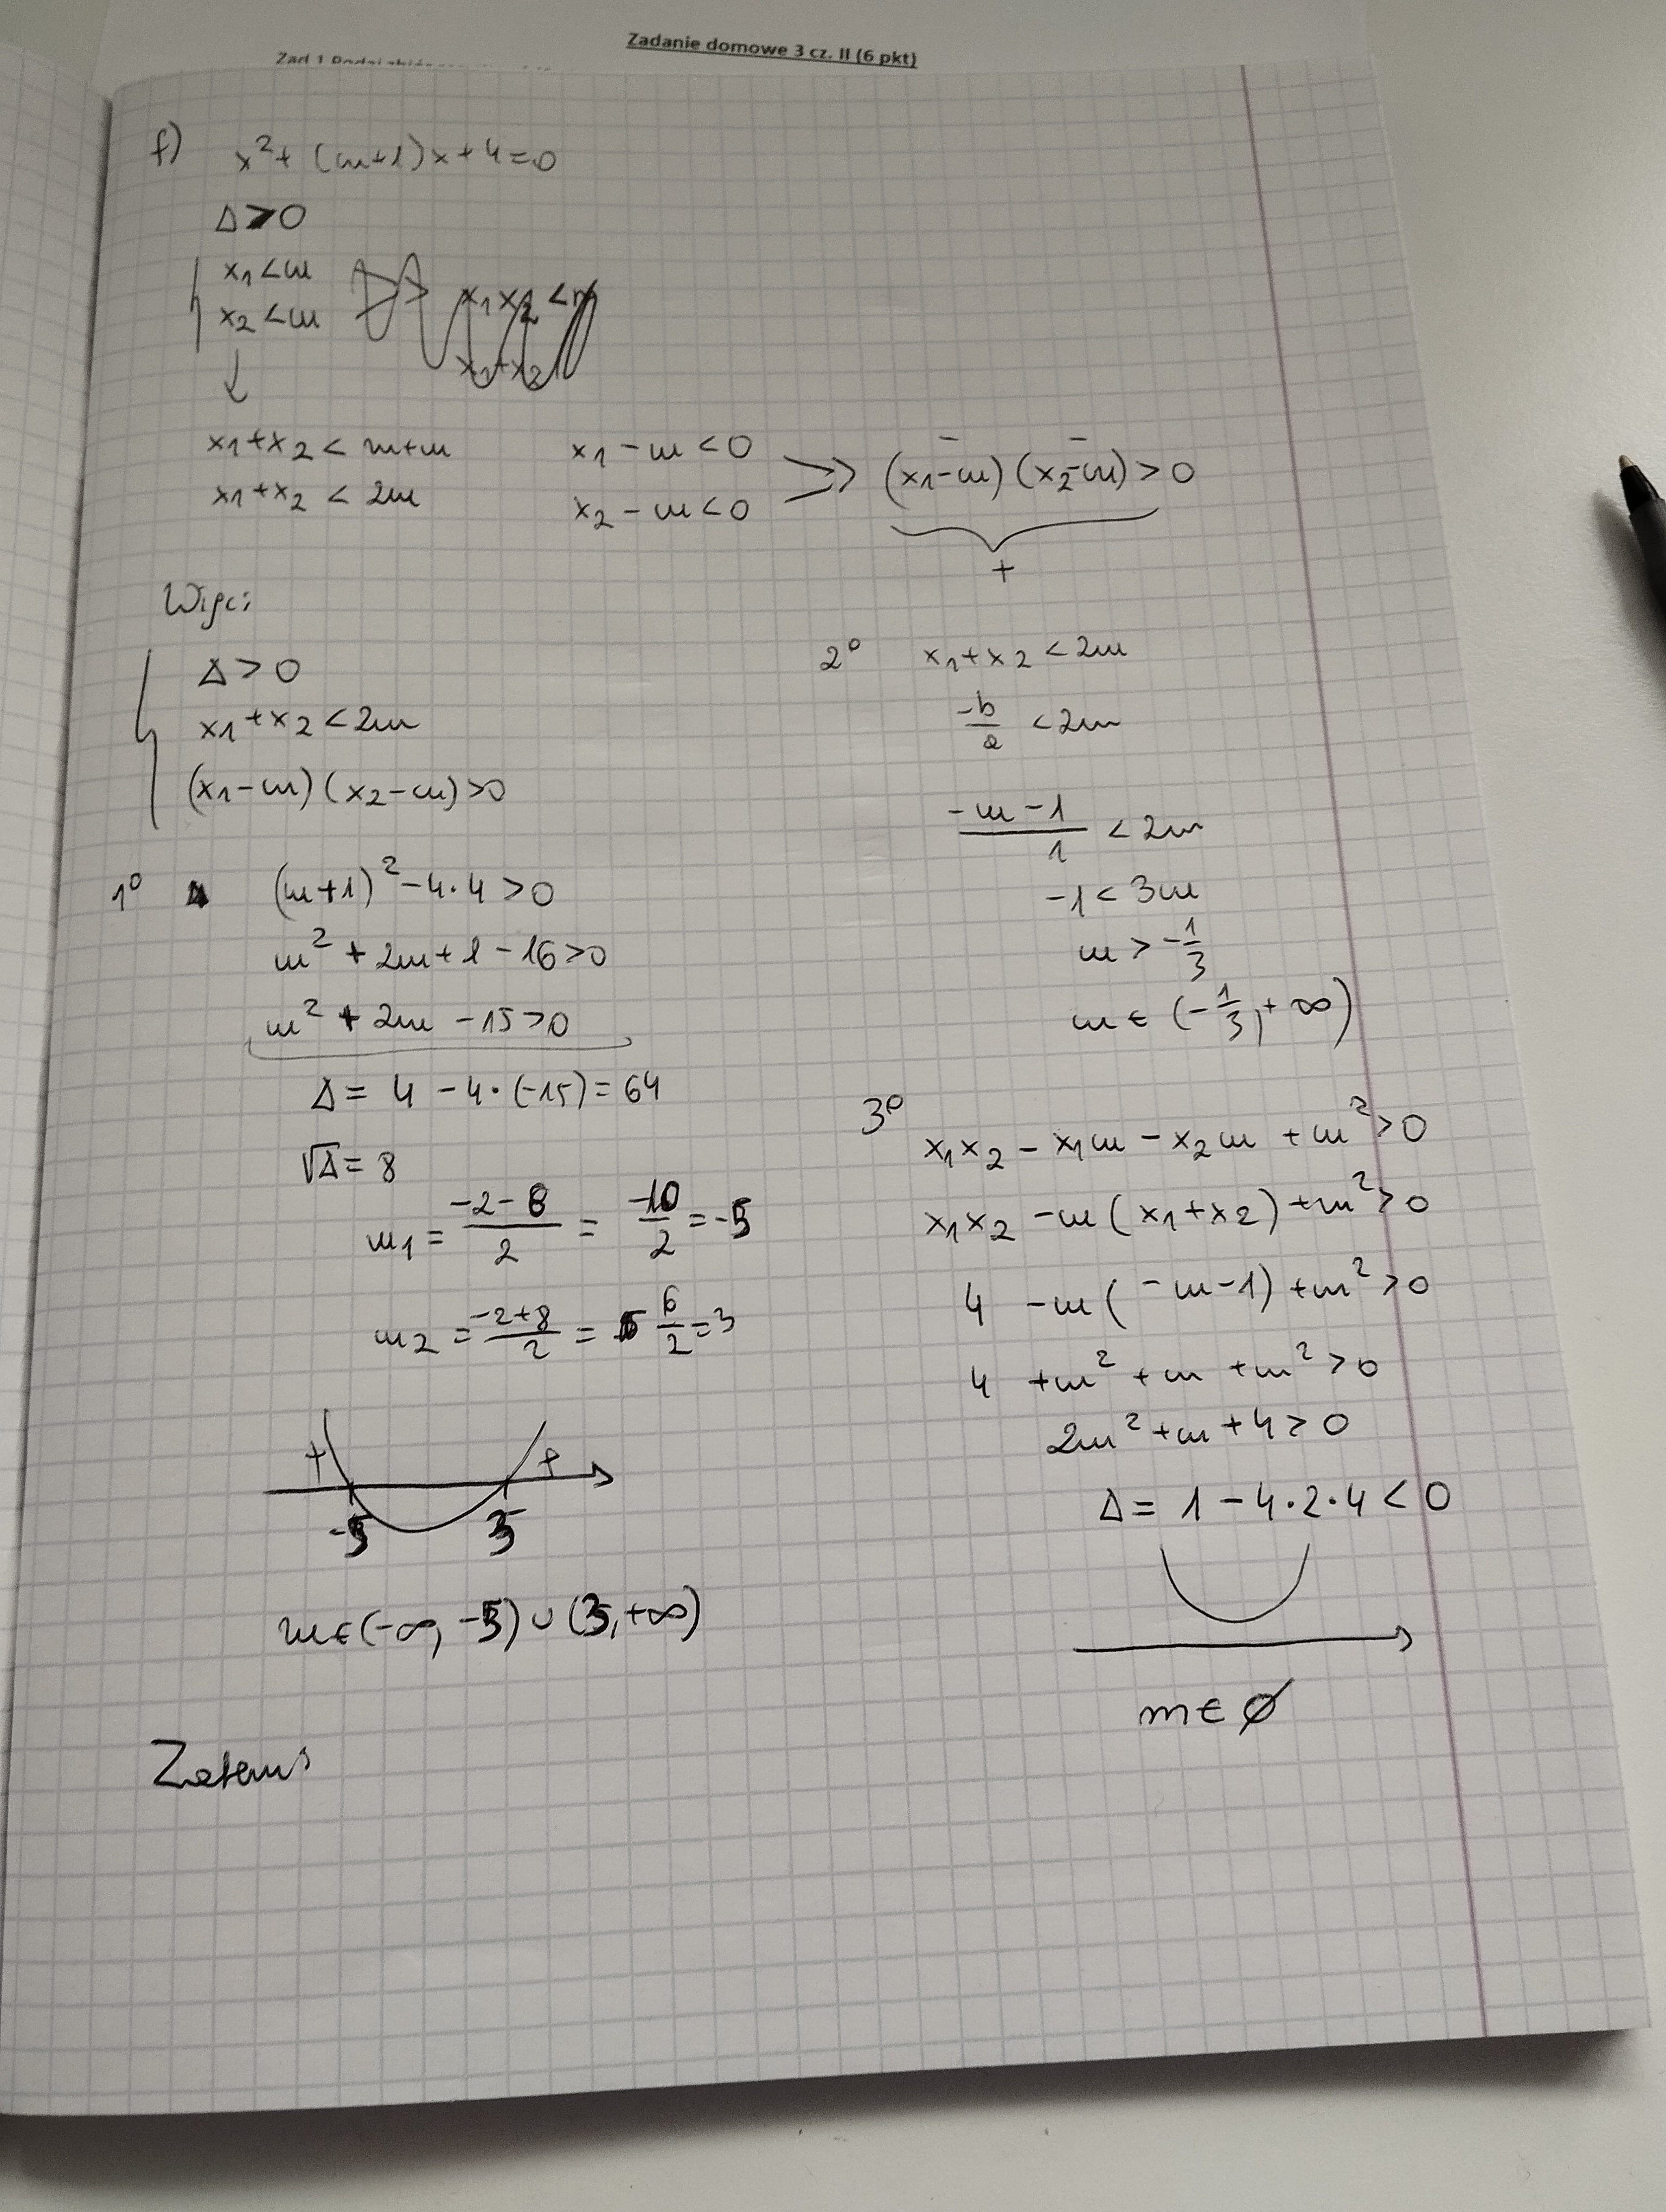 Zadanie domowe 3 cz. II (6 pkt)
Zad 1 Podaj
f) x² + (m+1)x + 4 = 0
Δ > 0
x₁ < m
x₂ < m
x₁x₂ < m
x₁+x₂
x₁+x₂ < m+m
x₁+x₂ < 2m
x₁ - m < 0
x₂ - m < 0
(x₁-m)(x₂-m) > 0
- -
+
Więc:
Δ > 0
x₁+x₂ < 2m
(x₁-m)(x₂-m) > 0
1° (m+1)² - 4·4 > 0
m² + 2m + 1 - 16 > 0
m² + 2m - 15 > 0
Δ = 4 - 4·(-15) = 64
√Δ = 8
m₁ = (-2-8)/2 = -10/2 = -5
m₂ = (-2+8)/2 = 6/2 = 3
+ +
-5 3
m ∈ (-∞, -5) ∪ (3, +∞)
2° x₁+x₂ < 2m
-b/a < 2m
(-m-1)/1 < 2m
-1 < 3m
m > -1/3
m ∈ (-1/3, +∞)
3° x₁x₂ - x₁m - x₂m + m² > 0
x₁x₂ - m(x₁+x₂) + m² > 0
4 - m(-m-1) + m² > 0
4 + m² + m + m² > 0
2m² + m + 4 > 0
Δ = 1 - 4·2·4 < 0
m ∈ ∅
Zatem: